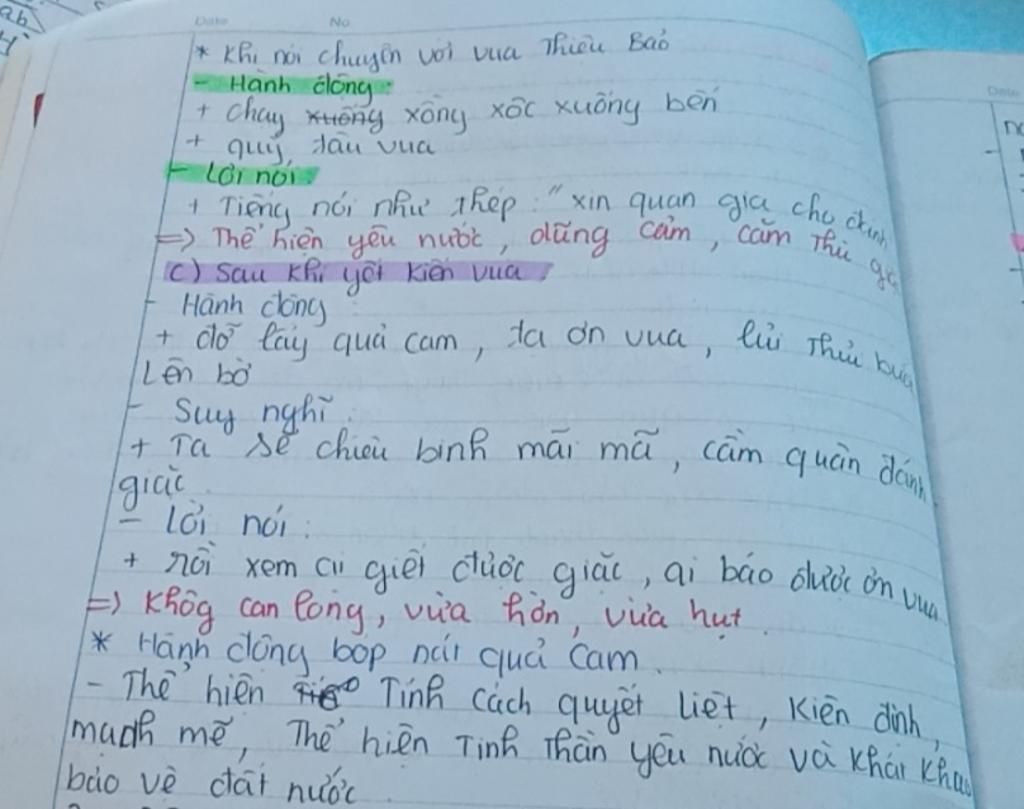 Date No
* Khi nói chuyện với vua Thiệu Bảo
- Hành động:
+ Chạy xuống xông xốc xuống bến
+ quỳ, tâu vua
- Lời nói:
+ Tiếng nói như thép: "xin quan gia cho đánh
=> Thể hiện yêu nước, dũng cảm, căm thù
c) Sau khi yết kiến vua:
- Hành động
+ đỡ lấy quả cam, tạ ơn vua, lủi thủi bước
Lên bờ
- Suy nghĩ:
+ Ta sẽ chiêu binh mãi mã, cầm quân đánh
giặc
- lời nói:
+ rồi xem ai giết được giặc, ai báo được ơn vua
=> Khôg cam lòng, vừa hờn, vừa hụt.
* Hành động bóp nát quả cam
- Thể hiện Tính cách quyết liệt, Kiên định,
mạnh mẽ, Thể hiện Tinh Thần yêu nước và khát khao
bảo vệ đất nước
Date